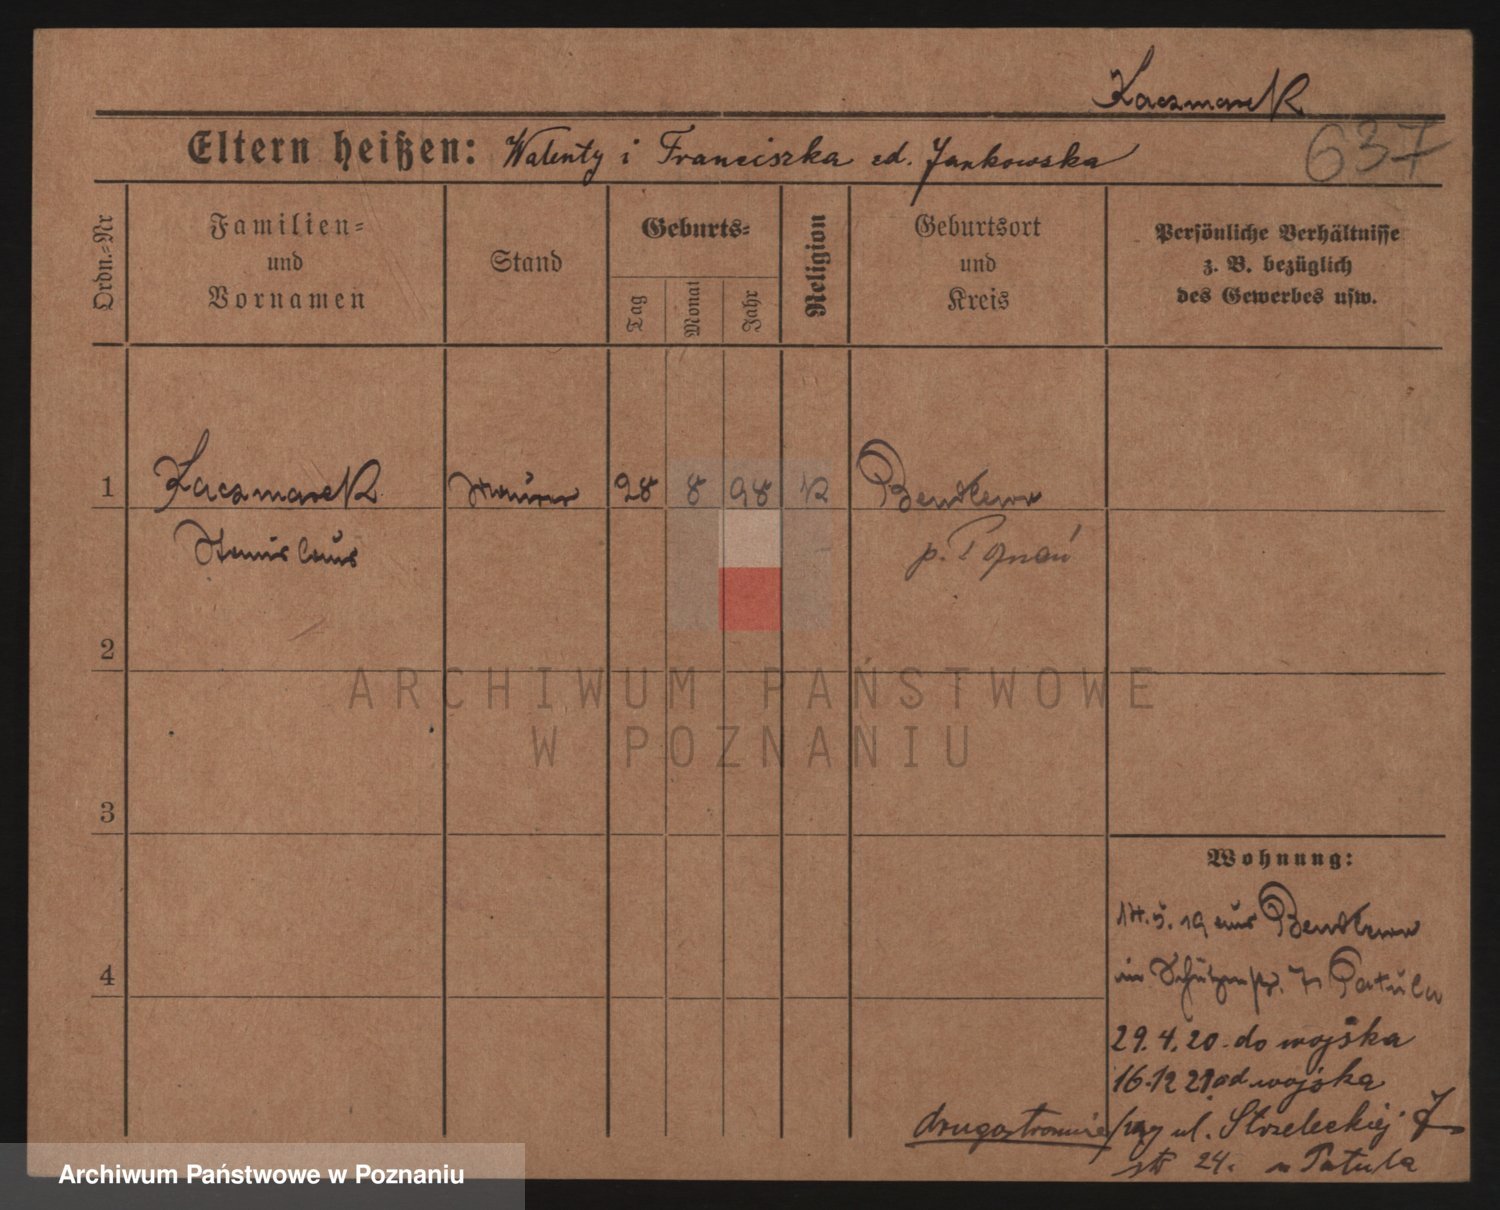 Kaczmarek
637
Eltern heißen: Walenty i Franciszka zd. Jankowska
Ordn.-Nr
Familien-
und
Vornamen
Stand
Geburts-
Tag
Monat
Jahr
Religion
Geburtsort
und
Kreis
Persönliche Verhältnisse
z. B. bezüglich
des Gewerbes usw.
1 Kaczmarek Maurer 28 8 98 K Bendlewo
Stanislaus p. Poznań
2
ARCHIWUM PAŃSTWOWE
W POZNANIU
3
Wohnung:
14.5.19 aus Bendlewo
in Schützenstr. 7 Patula
4
29.4.20 do wojska
16.12 21 od wojska
drugostronnie przy ul. Strzeleckiej 7
24. u Patula
Archiwum Państwowe w Poznaniu